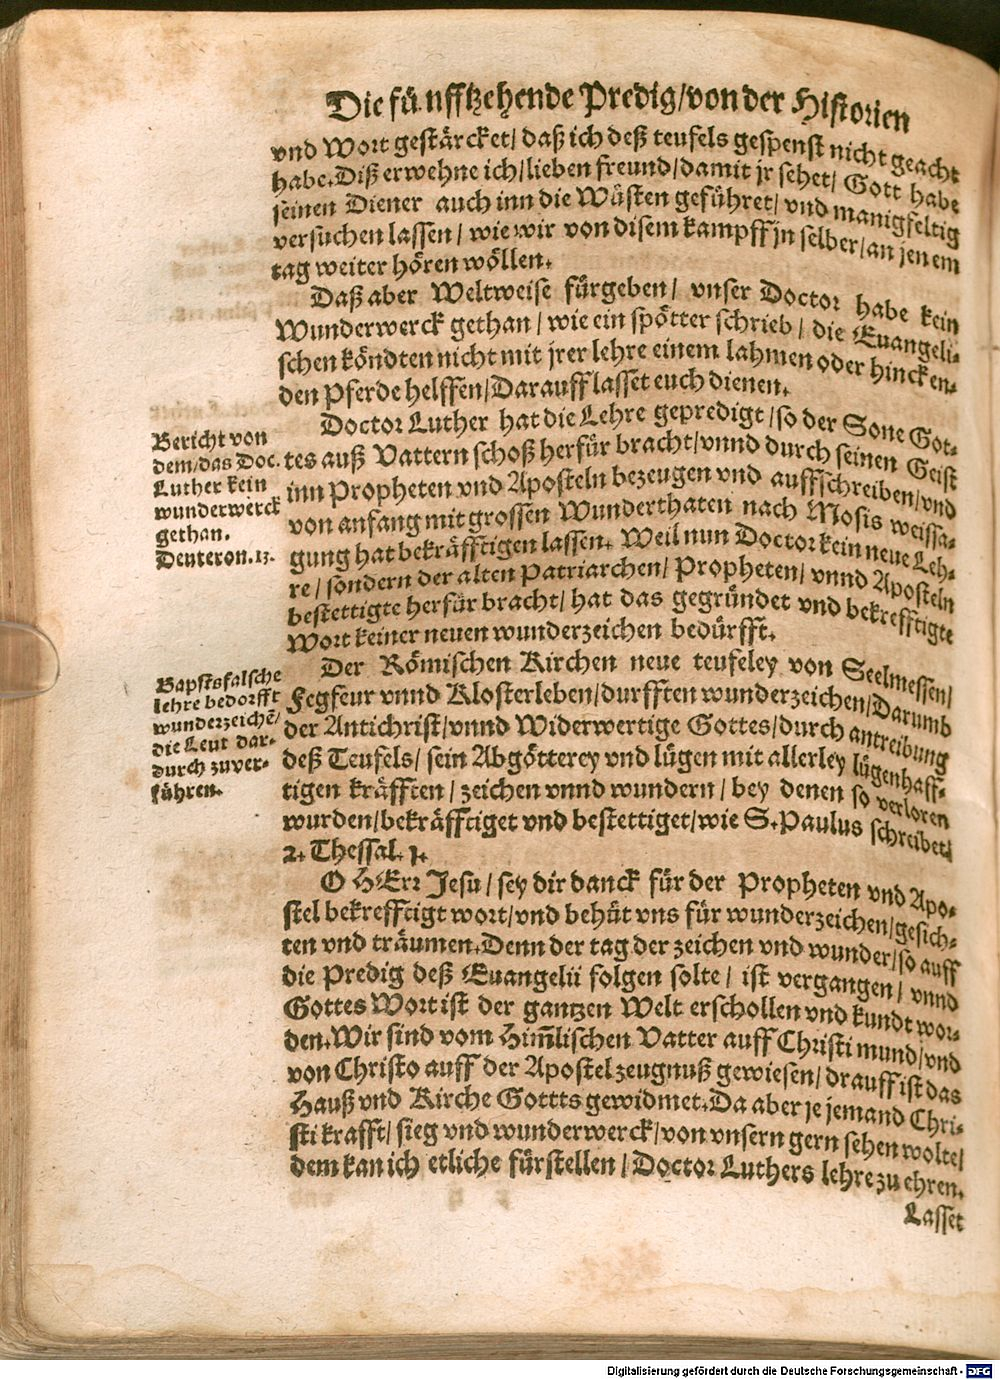 Die fünfftzehende Predig/von der Historien
vnd Wort gestärcket/ daß ich deß teufels gespenst nicht geacht
habe. Diß erwehne ich/lieben freund/damit jr sehet/ Gott habe
seinen Diener auch inn die Wüsten geführet/ vnd manigfeltig
versuchen lassen/ wie wir von disem kampff jn selber/an jenem
tag weiter hören wöllen.
Daß aber Weltweise fürgeben/ vnser Doctor habe kein
Wunderwerck gethan/ wie ein spötter schrieb/ die Euangeli-
schen köndten nicht mit jrer lehre einem lahmen oder hincken-
den Pferde helffen/Darauff lasset euch dienen.
Doctor Luther hat die Lehre gepredigt/so der Sone Got-
tes auß Vattern schoß herfür bracht/vnnd durch seinen Geist
inn Propheten vnd Aposteln bezeugen vnd auffschreiben/vnd
von anfang mit grossen Wunderthaten nach Mosis weissa-
gung hat bekräfftigen lassen. Weil nun Doctor kein neue Leh-
re/ sondern der alten Patriarchen/ Propheten/ vnnd Aposteln
bestettigte herfür bracht/ hat das gegründet vnd bekrefftigte
Wort keiner neuen wunderzeichen bedürfft.
Bericht von
dem/das Doc.
Luther kein
wunderwerck
gethan.
Deuteron.13.
Der Römischen Kirchen neue teufeley von Seelmessen/
Fegfeur vnnd Klosterleben/durfften wunderzeichen/Darumb
der Antichrist/vnnd Widerwertige Gottes/durch antreibung
deß Teufels/ sein Abgötterey vnd lügen mit allerley lügenhaff-
tigen kräfften/ zeichen vnnd wundern/ bey denen so verloren
wurden/bekräfftiget vnd bestettiget/wie S. Paulus schreibet/
2. Thessal. j.
Bapsts falsche
lehre bedorfft
wunderzeichē/
die Leut dar-
durch zuver-
führen.
O HErr Jesu/ sey dir danck für der Propheten vnd Apo-
stel bekrefftigt wort/vnd behüt vns für wunderzeichen/gesich-
ten vnd träumen. Denn der tag der zeichen vnd wunder/so auff
die Predig deß Euangelii folgen solte/ ist vergangen/ vnnd
Gottes Wort ist der gantzen Welt erschollen vnd kundt wor-
den. Wir sind vom Him̄lischen Vatter auff Christi mund/vnd
von Christo auff der Apostel zeugnuß gewiesen/ drauff ist das
Hauß vnd Kirche Gottts gewidmet. Da aber je jemand Chri-
sti krafft/ sieg vnd wunderwerck/von vnsern gern sehen wolte/
dem kan ich etliche fürstellen/ Doctor Luthers lehre zu ehren.
Lasset
Digitalisierung gefördert durch die Deutsche Forschungsgemeinschaft - DFG